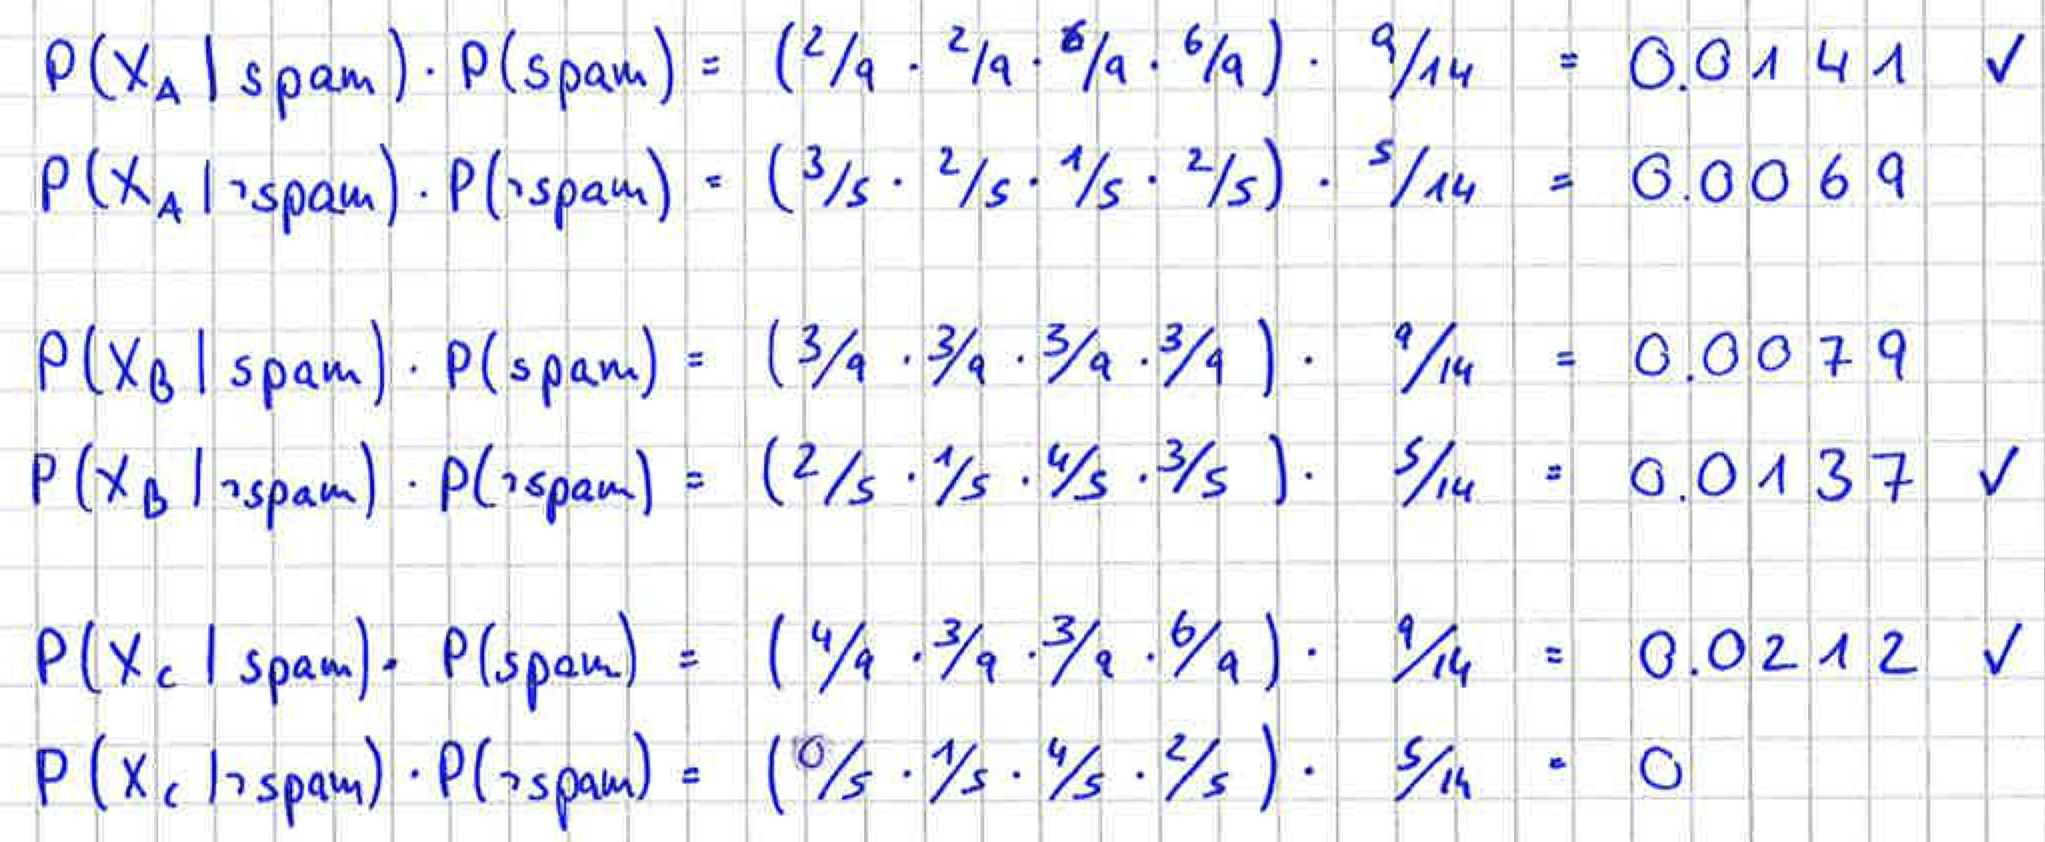 P(X_A | spam) · P(spam) = (2/9 · 2/9 · 6/9 · 6/9) · 9/14 = 0.0141 ✓
P(X_A | ¬spam) · P(¬spam) = (3/5 · 2/5 · 1/5 · 2/5) · 5/14 = 0.0069
P(X_B | spam) · P(spam) = (3/9 · 3/9 · 3/9 · 3/9) · 9/14 = 0.0079
P(X_B | ¬spam) · P(¬spam) = (2/5 · 1/5 · 4/5 · 3/5) · 5/14 = 0.0137 ✓
P(X_C | spam) · P(spam) = (4/9 · 3/9 · 3/9 · 6/9) · 9/14 = 0.0212 ✓
P(X_C | ¬spam) · P(¬spam) = (0/5 · 1/5 · 4/5 · 2/5) · 5/14 = 0